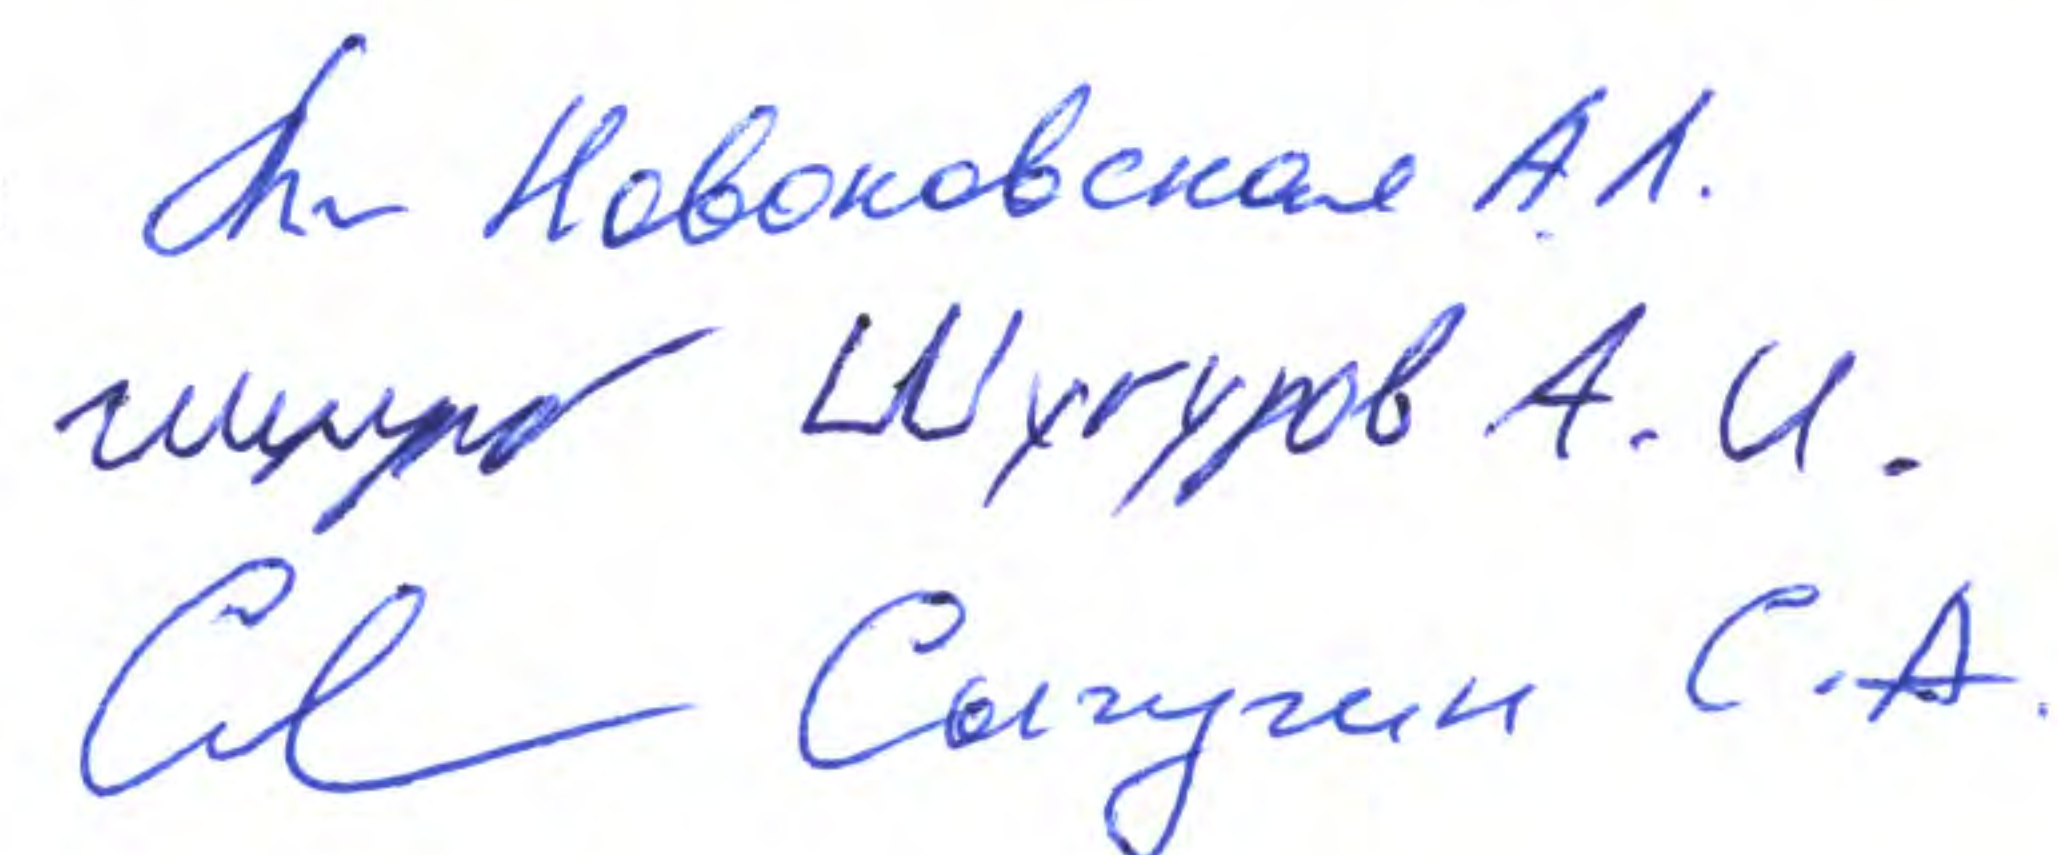 Новоковская А.Л.
Шугуров А.И.
Сычугин С.А.